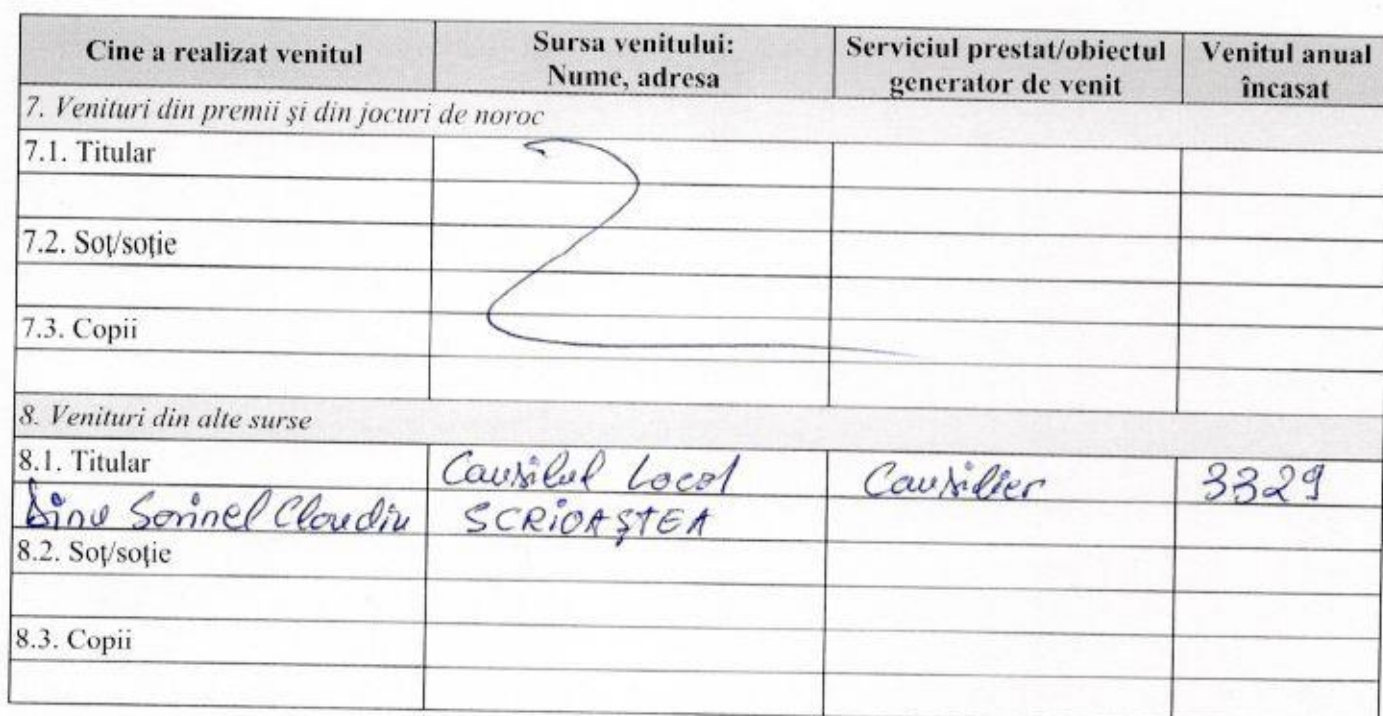 Cine a realizat venitul
Sursa venitului:
Nume, adresa
Serviciul prestat/obiectul
generator de venit
Venitul anual
încasat
7. Venituri din premii şi din jocuri de noroc
7.1. Titular
7.2. Soţ/soţie
7.3. Copii
8. Venituri din alte surse
8.1. Titular
Consilul Local
Consilier
3329
Dinu Sorinel Claudiu
SCRIOAŞTEA
8.2. Soţ/soţie
8.3. Copii